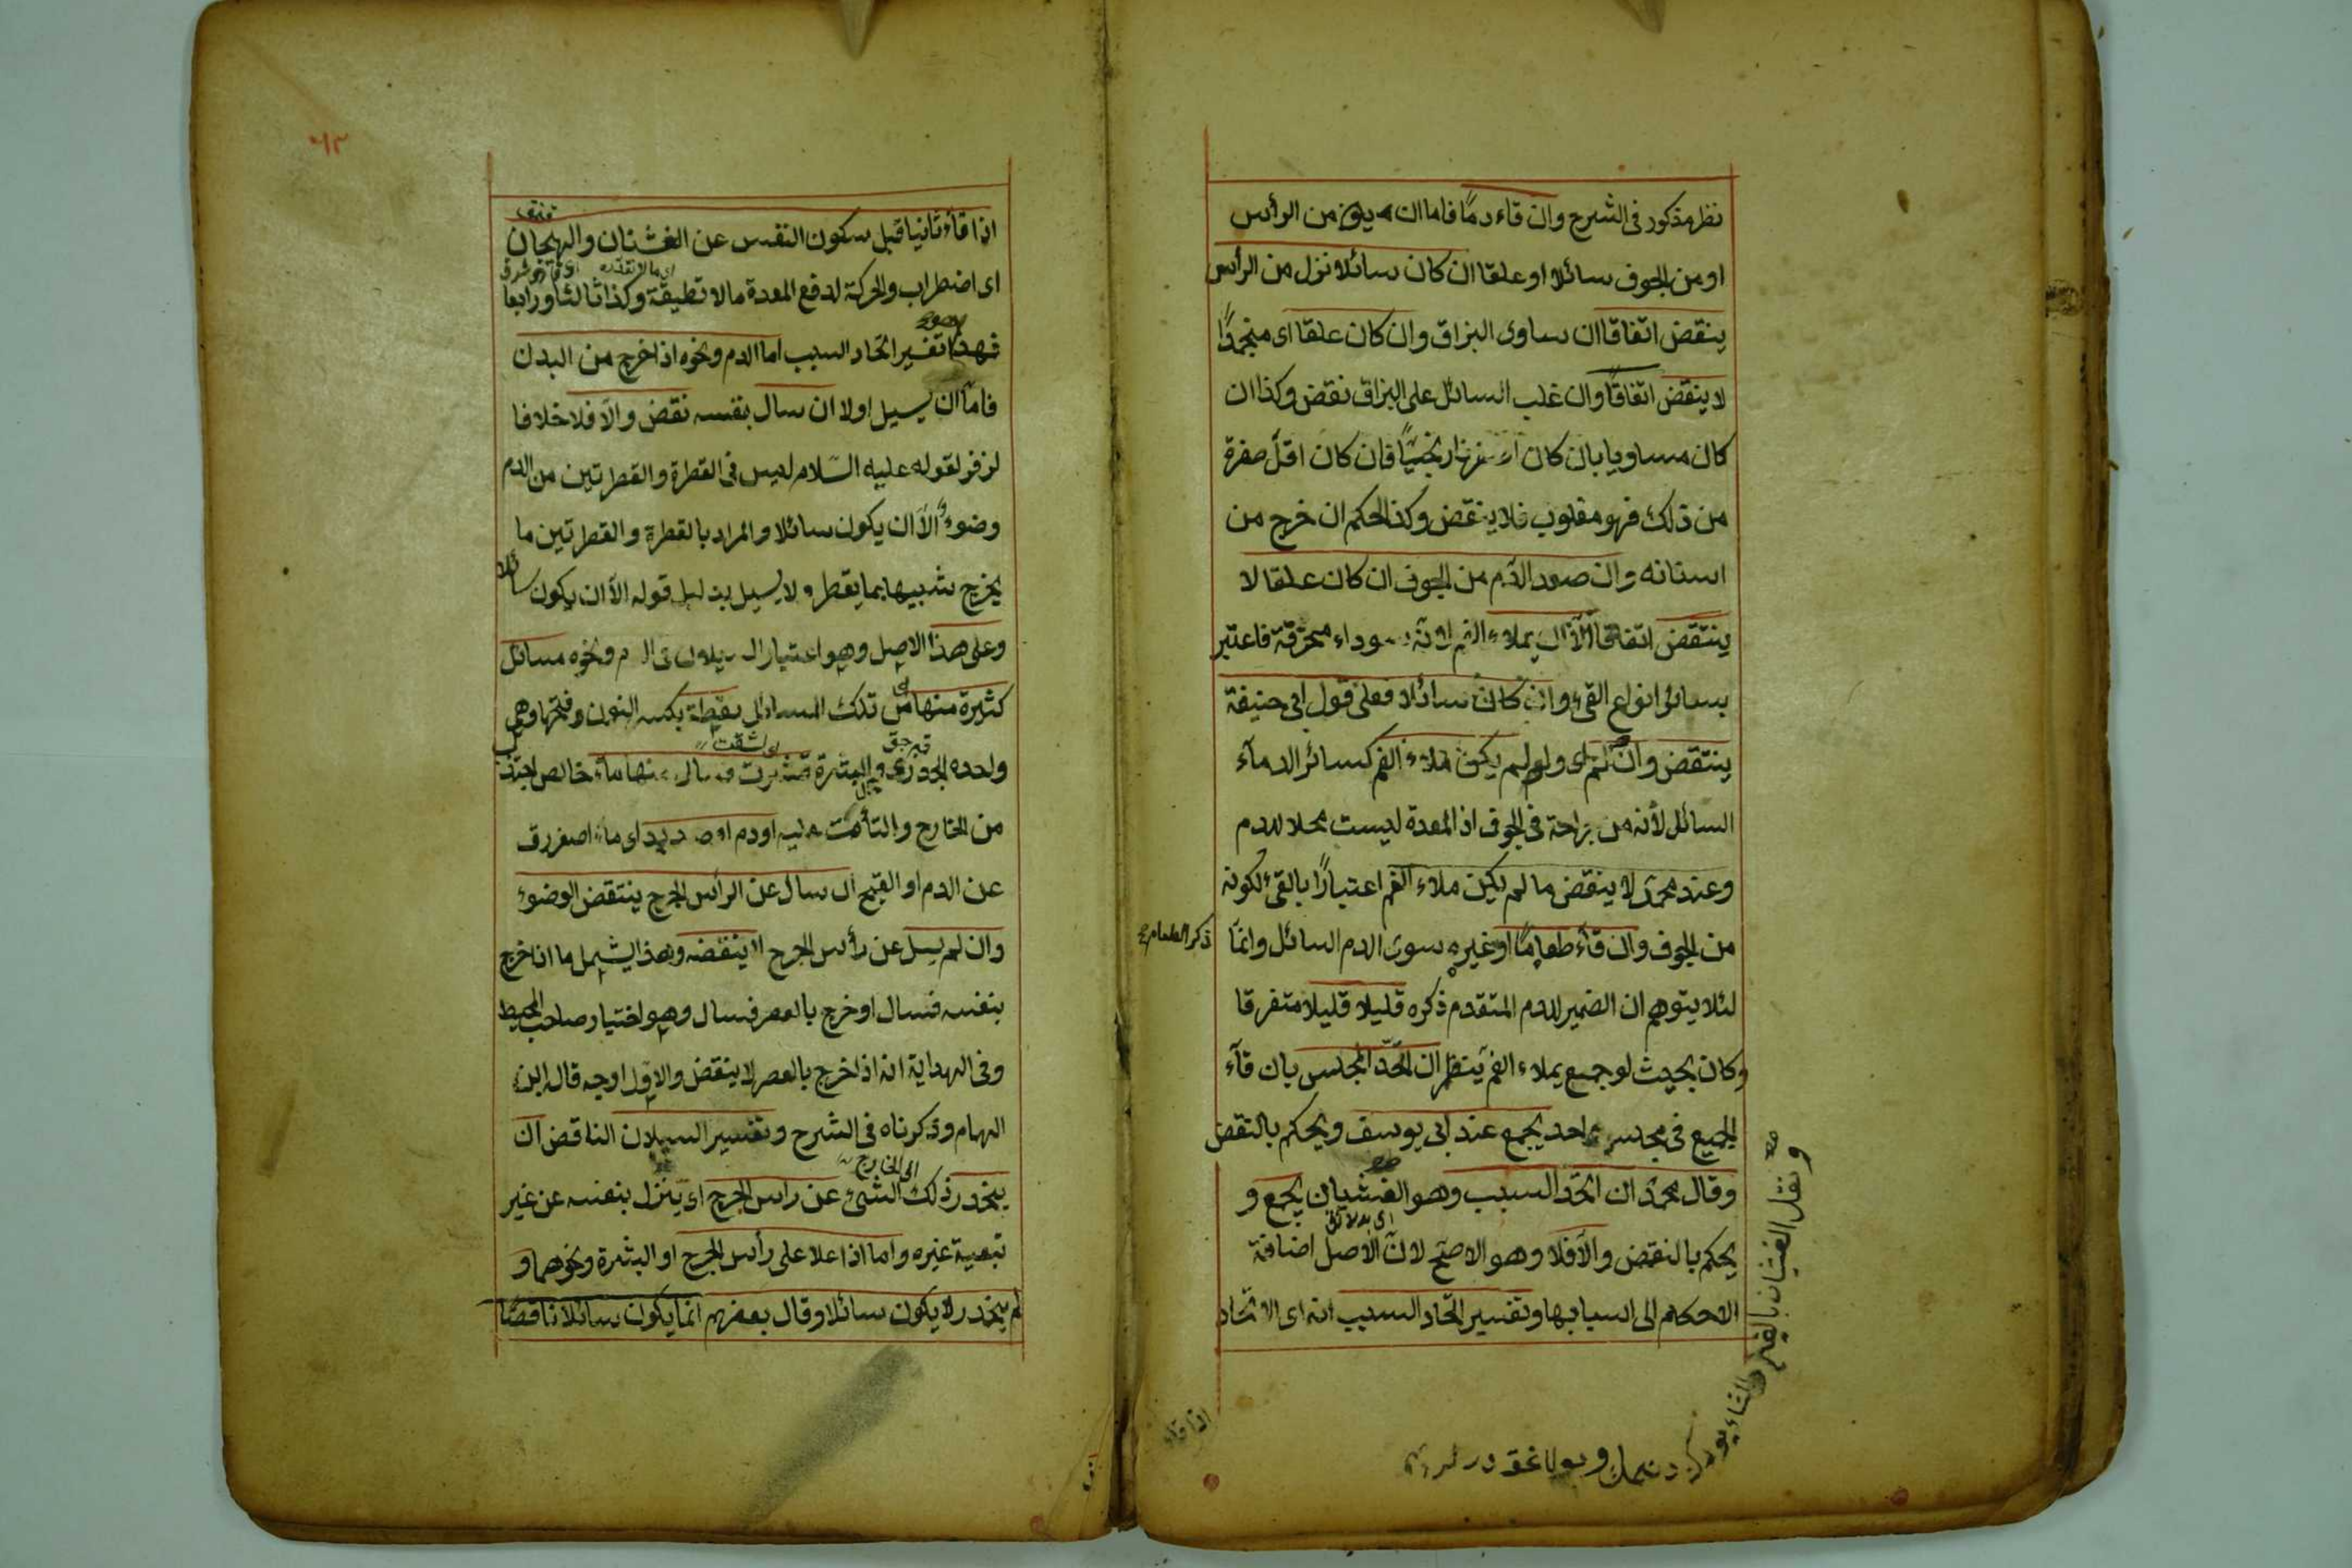 نظر مذكور فى الشرح وان قاء دمًا فاما ان يكون من الرأس
او من الجوف سائلا او علقا ان كان سائلا نزل من الرأس
ينقض اتفاقا ان ساوى البزاق وان كان علقا اى منجمدًا
لا ينقض اتفاقًا وان غلب السائل على البزاق نقض وكذا ان
كان مساويا بان كان نارنجيًا فان كان اقل صفرة
من ذلك فهو مغلوب فلا ينقض وكذا الحكم ان خرج من
اسنانه وان صعد الدم من الجوف ان كان علقا لا
ينتقض اتفاقا الا ان يملاء الفم لانه سوداء محرقة فاعتبر
بسائر انواع القئ وان كان سائلا فعلى قول ابى حنيفة
ينتقض وان لم اى ولو لم يكن ملاء الفم كسائر الدماء
السائل لأنه من جراحة فى الجوف اذ المعدة ليست محلا للدم
وعند محمد لا ينقض ما لم يكن ملاء الفم اعتبارًا بالقئ لكونه
من الجوف وان قاء طعامًا او غيره سوى الدم السائل وانما
ذكر الطعام
لئلا يتوهم ان الضمير للدم المتقدم ذكره قليلا قليلا متفرقا
وكان بحيث لو جمع يملاء الفم ينظر ان اتحد المجلس بان قاء
الجميع فى مجلس واحد يجمع عند ابى يوسف ويحكم بالنقض
وقال محمد ان اتحد السبب وهو الغثيان يجمع و
يحكم بالنقض والا فلا وهو الاصح لان الاصل اضافة
الاحكام الى اسبابها وتفسير اتحاد السبب انه اى الاتحاد
ونقل الغثيان بالفتح
اذا قاء
اذا قاء ثانيا قبل سكون النفس عن الغثيان والهيجان
اى اضطراب والحركة لدفع المعدة ما لا تطيقه وكذا ثالثا ورابعا
فهذا تفسير اتحاد السبب اما الدم ونحوه اذا خرج من البدن
فاما ان يسيل اولا ان سال بنفسه نقض والا فلا خلافا
لزفر لقوله عليه السلام ليس فى القطرة والقطرتين من الدم
وضوء الا ان يكون سائلا والمراد بالقطرة والقطرتين ما
يخرج شبيها بما يقطر ولا يسيل بدليل قوله الا ان يكون سائلا
وعلى هذا الاصل وهو اعتبار السيلان فى الدم ونحوه مسائل
كثيرة منها اى من تلك المسائل نفطة بكسر النون وفتحها وهى
واحده الجدرى والبثرة قشرت فسال منها ماء خالص اجتذب
من الخارج والتأمت عليه او دم او صديد اى ماء اصفر رق
عن الدم او القيح ان سال عن الرأس الجرح ينتقض الوضوء
وان لم يسل عن رأس الجرح لا ينقضه وهذا يشمل ما اذا خرج
بنفسه فسال او خرج بالعصر فسال وهو اختيار صاحب المحيط
وفى الهداية انه اذا خرج بالعصر لا ينقض والاول اوجه قاله ابن
الهمام وذكرناه فى الشرح وتفسير السيلان الناقض ان
الى الخارج
ينحدر ذلك الشئ عن رأس الجرح اى ينزل بنفسه عن غير
تبعية غيره واما اذا علا على رأس الجرح او البثرة ونحوهما و
لم ينحدر لا يكون سائلا وقال بعضهم انما يكون سائلا ناقضا